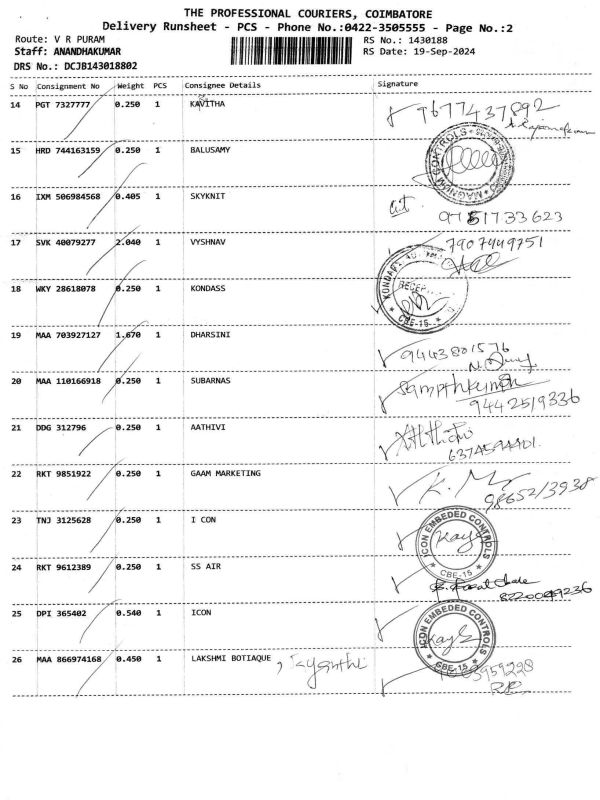 THE PROFESSIONAL COURIERS, COIMBATORE
Delivery Runsheet - PCS - Phone No.:0422-3505555 - Page No.:2
Route: V R PURAM RS No.: 1430188
Staff: ANANDHAKUMAR RS Date: 19-Sep-2024
DRS No.: DCJB143018802
S No Consignment No Weight PCS Consignee Details Signature
14 PGT 7327777 0.250 1 KAVITHA 9677437892
15 HRD 744163159 0.250 1 BALUSAMY MAGNUM CONTROLS
16 IXM 506984568 0.405 1 SKYKNIT
9751733623
17 SVK 40079277 2.040 1 VYSHNAV 7907449751
18 WKY 28618078 0.250 1 KONDASS
CBE-15
19 MAA 703927127 1.670 1 DHARSINI
9443801576
20 MAA 110166918 0.250 1 SUBARNAS Sampthkumar
9442519336
21 DDG 312796 0.250 1 AATHIVI
6374594401
22 RKT 9851922 0.250 1 GAAM MARKETING
9865213938
23 TNJ 3125628 0.250 1 I CON ICON EMBEDED CONTROLS
CBE-15
24 RKT 9612389 0.250 1 SS AIR
25 DPI 365402 0.540 1 ICON ICON EMBEDED CONTROLS
CBE-15
26 MAA 866974168 0.450 1 LAKSHMI BOTIAQUE , Jayanthi